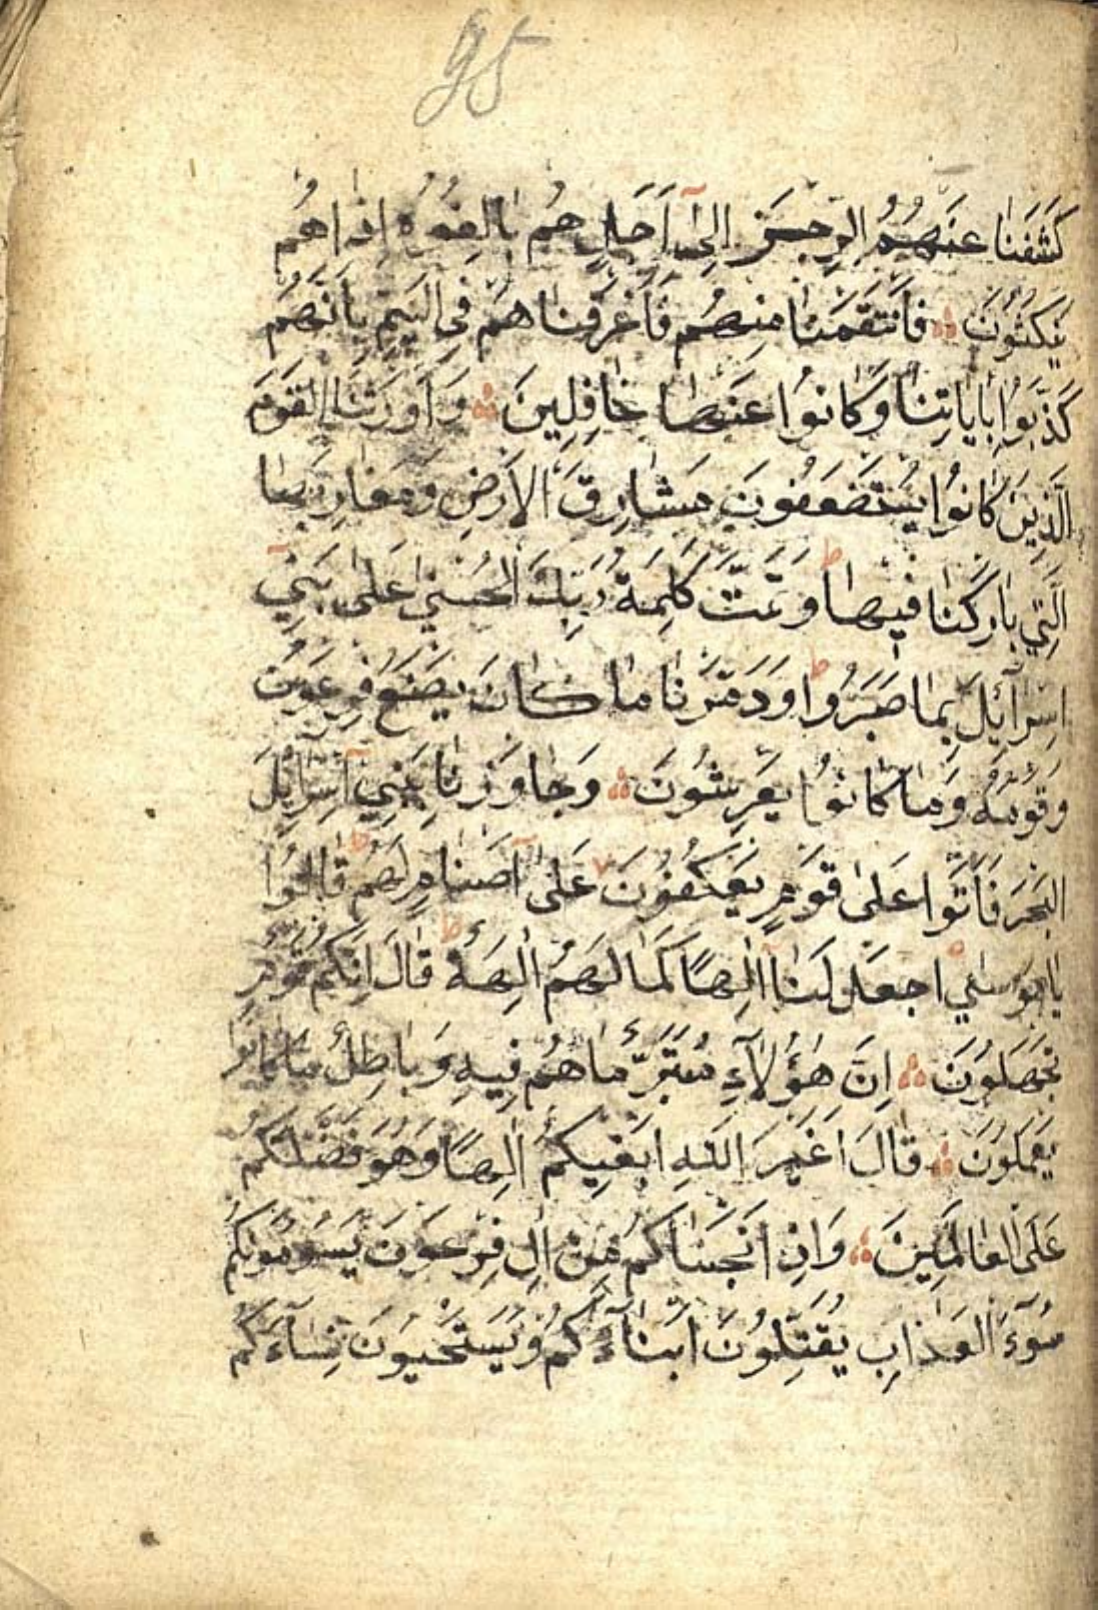 95
كَشَفْنَا عَنْهُمُ الرِّجْزَ اِلٰٓى اَجَلٍ هُمْ بَالِغُوهُ اِذَا هُمْ
يَنْكُثُونَ فَانْتَقَمْنَا مِنْهُمْ فَاَغْرَقْنَاهُمْ فِى الْيَمِّ بِاَنَّهُمْ
كَذَّبُوا بِاٰيَاتِنَا وَكَانُوا عَنْهَا غَافِلِينَ وَاَوْرَثْنَا الْقَوْمَ
الَّذِينَ كَانُوا يُسْتَضْعَفُونَ مَشَارِقَ الْاَرْضِ وَمَغَارِبَهَا
الَّتِي بَارَكْنَا فِيهَا ط وَتَمَّتْ كَلِمَةُ رَبِّكَ الْحُسْنٰى عَلٰى بَنِيٓ
اِسْرَٓائِلَ بِمَا صَبَرُوا ط وَدَمَّرْنَا مَا كَانَ يَصْنَعُ فِرْعَوْنُ
وَقَوْمُهُ وَمَا كَانُوا يَعْرِشُونَ وَجَاوَزْنَا بِبَنِيٓ اِسْرَٓائِلَ
الْبَحْرَ فَاَتَوْا عَلٰى قَوْمٍ يَعْكُفُونَ عَلٰٓى اَصْنَامٍ لَهُمْ ط قَالُوا
يَا مُوسٰى اجْعَلْ لَنَٓا اِلٰهًا كَمَا لَهُمْ اٰلِهَةٌ ط قَالَ اِنَّكُمْ قَوْمٌ
تَجْهَلُونَ اِنَّ هٰٓؤُلَٓاءِ مُتَبَّرٌ مَا هُمْ فِيهِ وَبَاطِلٌ مَا كَانُوا
يَعْمَلُونَ قَالَ اَغَيْرَ اللّٰهِ اَبْغِيكُمْ اِلٰهًا وَهُوَ فَضَّلَكُمْ
عَلَى الْعَالَمِينَ وَاِذْ اَنْجَيْنَاكُمْ مِنْ اٰلِ فِرْعَوْنَ يَسُومُونَكُمْ
سُوٓءَ الْعَذَابِ يُقَتِّلُونَ اَبْنَٓاءَكُمْ وَيَسْتَحْيُونَ نِسَٓاءَكُمْ